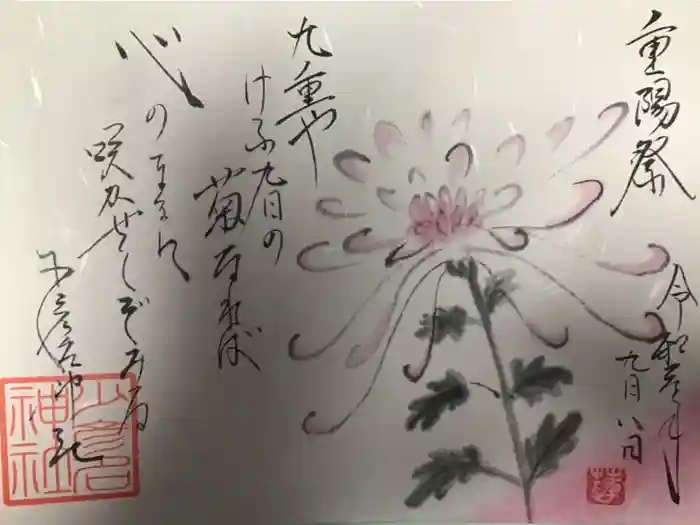 重陽祭
令和元年
九月八日
九重や
けふ九日の
菊なれば
心のまゝに
咲かせてぞみる
神社